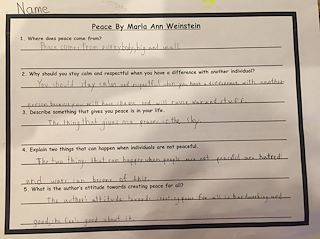 Name
Peace By Marla Ann Weinstein
1. Where does peace come from?
Peace comes from everybody, big and small.
2. Why should you stay calm and respectful when you have a difference with another individual?
You should stay calm and respectful when you have a difference with another
person because you will have chaos and will cause war and stuff.
3. Describe something that gives you peace is in your life.
The thing that gives me peace is the sky.
4. Explain two things that can happen when individuals are not peaceful.
The two things that can happen when people are not peaceful are hatred
and wars can become of this.
5. What is the author's attitude towards creating peace for all?
The author's attitude towards creating peace for all is hardworking and
good, to feel good about it.